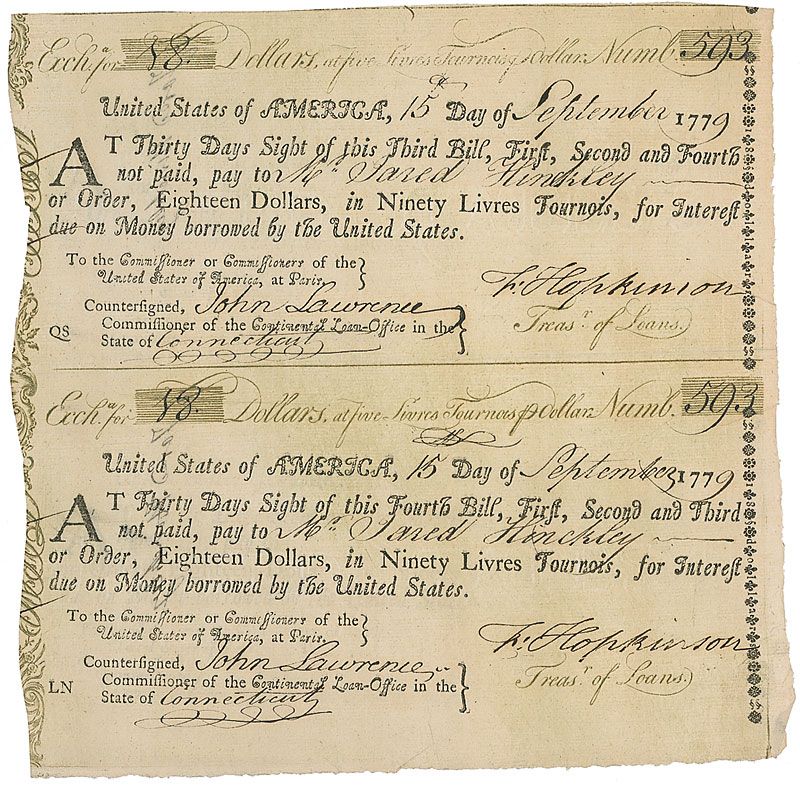 Excha. for 18. Dollars, at five Livres Tournois ⅌ Dollar Numb. 593
United States of AMERICA, 15th Day of September 1779
AT Thirty Days Sight of this Third Bill, First, Second and Fourth
not paid, pay to Mr. Jared Hinckley
or Order, Eighteen Dollars, in Ninety Livres Tournois, for Interest
due on Money borrowed by the United States.
To the Commissioner or Commissioners of the
United States of America, at Paris.
F. Hopkinson
Countersigned, John Lawrence
Treasr. of Loans.
Commissioner of the Continental Loan-Office in the
QS
State of Connecticut
Excha. for 18. Dollars, at five Livres Tournois ⅌ Dollar Numb. 593
United States of AMERICA, 15 Day of September 1779
AT Thirty Days Sight of this Fourth Bill, First, Second and Third
not paid, pay to Mr. Jared Hinckley
or Order, Eighteen Dollars, in Ninety Livres Tournois, for Interest
due on Money borrowed by the United States.
To the Commissioner or Commissioners of the
United States of America, at Paris.
F. Hopkinson
Countersigned, John Lawrence
Treasr. of Loans.
Commissioner of the Continental Loan-Office in the
LN
State of Connecticut